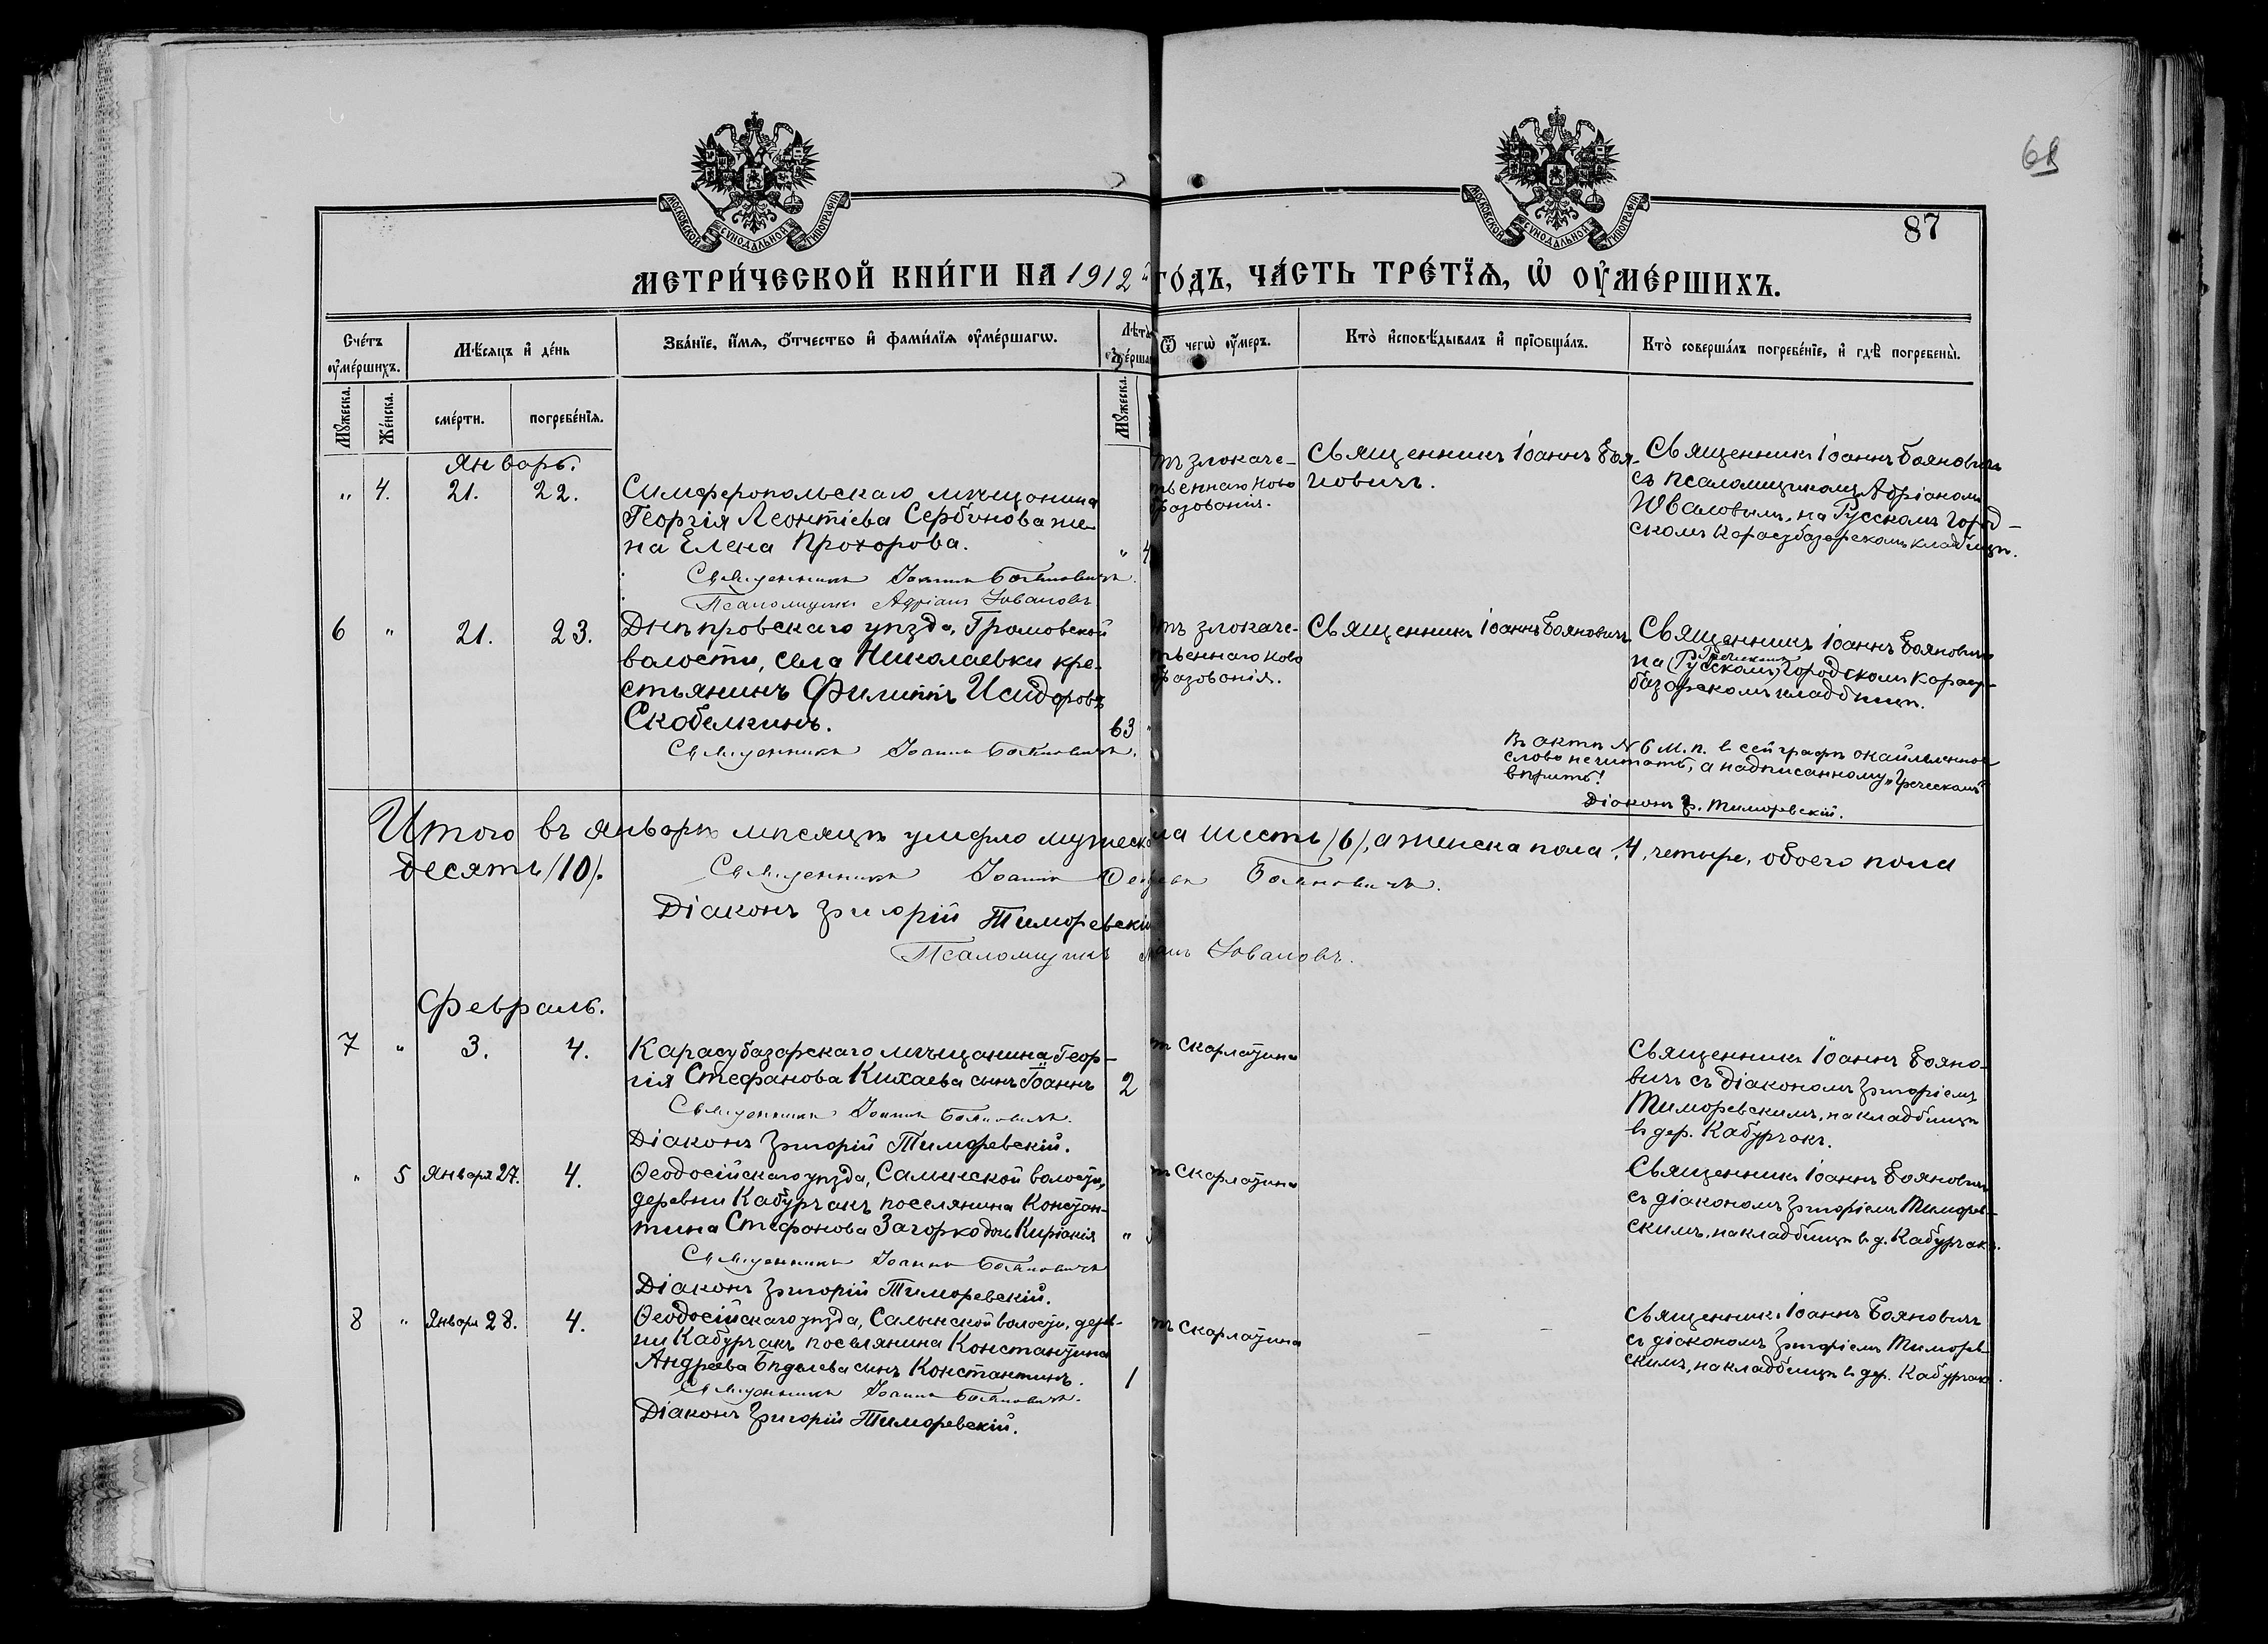 68
87
МОСКОВСКОЙ СѴНОДАЛЬНОЙ ТИПОГРАФІИ
МОСКОВСКОЙ СѴНОДАЛЬНОЙ ТИПОГРАФІИ
МЕТРИ́ЧЕСКОЙ КНИ́ГИ НА 1912й ГО́ДЪ, ЧА́СТЬ ТРЕ́ТЇѦ, Ѡ҆ ОУ҆МЕ́РШИХЪ.
Сче́тъ оу҆ме́ршихъ.
Мѣ́сяцъ и҆ де́нь
Зва́нїе, и҆́мѧ, ѻ҆́тчество и҆ фами́лїѧ оу҆ме́ршагѡ.
Лѣта̀
Ѿ чегѡ̀ оу҆́меръ.
Кто̀ и҆сповѣ́дывалъ и҆ прїѡбща́лъ.
Кто̀ соверша́лъ погребе́нїе, и҆ гдѣ̀ погребены̀.
Мꙋ́жеска.
Же́нска.
сме́рти.
погребе́нїѧ.
Мꙋ́жеска.
Январь.
„ 4. 21. 22.
Симферопольскаго мѣщанина
Георгія Леонтіева Сербинова же-
на Елена Прохорова.
„ 4
Священникъ Іоаннъ Бояновичъ.
Псаломщикъ Адріанъ Іоваловъ
тъ злокаче-
твеннаго ново
разованія.
Священникъ Іоаннъ Боя-
новичъ.
Священникъ Іоаннъ Бояновичъ
съ псаломщикомъ Адріаномъ
Іоваловымъ, на Русскомъ город-
скомъ Карасубазарскомъ кладбищѣ.
6 „ 21. 23.
Днѣпровскаго уѣзда, Громовской
волости, села Николаевки кре-
стьянинъ Филиппъ Исидоровъ
Скобелкинъ.
63
Священникъ Іоаннъ Бояновичъ.
тъ злокаче-
твеннаго ново
разованія.
Священникъ Іоаннъ Бояновичъ
Священникъ Іоаннъ Бояновичъ
Греческомъ
на (Русскомъ) городскомъ Карасу-
базарскомъ кладбищѣ.
Въ актѣ № 6 м. п. в сей графѣ окаймленное
слово не читать, а надписанному „Греческомъ“
вѣрить!
Діаконъ Гр. Тиморевскій.
Итого въ Январѣ мѣсяцѣ умерло мужеска пола шесть /6/, а женска пола, 4, четыре, обоего пола
десять /10/.
Священникъ Іоаннъ Бояновичъ.
Діаконъ Григорій Тиморевскій
Псаломщикъ Іоваловъ.
Февраль.
7 „ 3. 4.
Карасубазарскаго мѣщанина Геор-
гія Стефанова Кихаева сынъ Іоаннъ
2
Священникъ Іоаннъ Бояновичъ.
Діаконъ Григорій Тиморевскій.
тъ Скарлатины
Священникъ Іоаннъ Бояно-
вичъ съ діакономъ Григоріемъ
Тиморевскимъ, на кладбищѣ
въ дер. Кабурчакъ.
„ 5 Января 27. 4.
Ѳеодосійскаго уѣзда, Салынской волости,
деревни Кабурчакъ поселянина Констан-
тина Стефанова Загорко дочь Киріакія
„
Священникъ Іоаннъ Бояновичъ
Діаконъ Григорій Тиморевскій.
тъ Скарлатины
Священникъ Іоаннъ Бояновичъ
съ діакономъ Григоріемъ Тиморев-
скимъ, на кладбищѣ в д. Кабурчакъ.
8 „ Января 28. 4.
Ѳеодосійскаго уѣзда, Салынской волости, дерев-
ни Кабурчакъ поселянина Константина
Андреева Бѣделева сынъ Константинъ.
1
Священникъ Іоаннъ Бояновичъ.
Діаконъ Григорій Тиморевскій.
тъ Скарлатины
– –
Священникъ Іоаннъ Бояновичъ
съ діакономъ Григоріемъ Тиморев-
скимъ, на кладбищѣ в дер. Кабурчакъ.